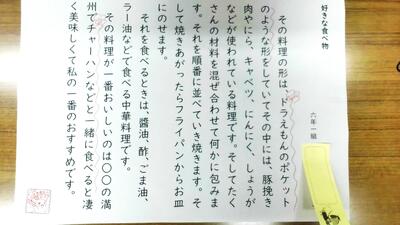 好きな食べ物
六年一組
その料理の形は、ドラえもんのポケット
のような形をしていてその中には、豚挽き
肉やにら、キャベツ、にんにく、しょうが
などが使われている料理です。そしてたく
さんの材料を混ぜ合わせて何かに包みま
す。それを順番に並べていき焼きます。そ
して焼きあがったらフライパンからお皿
にのせます。
それを食べるときは、醤油、酢、ごま油、
ラー油などで食べる中華料理です。
その料理が一番おいしいのは〇〇の満
州でチャーハンなどと一緒に食べると凄
く美味しくて私の一番のおすすめです。